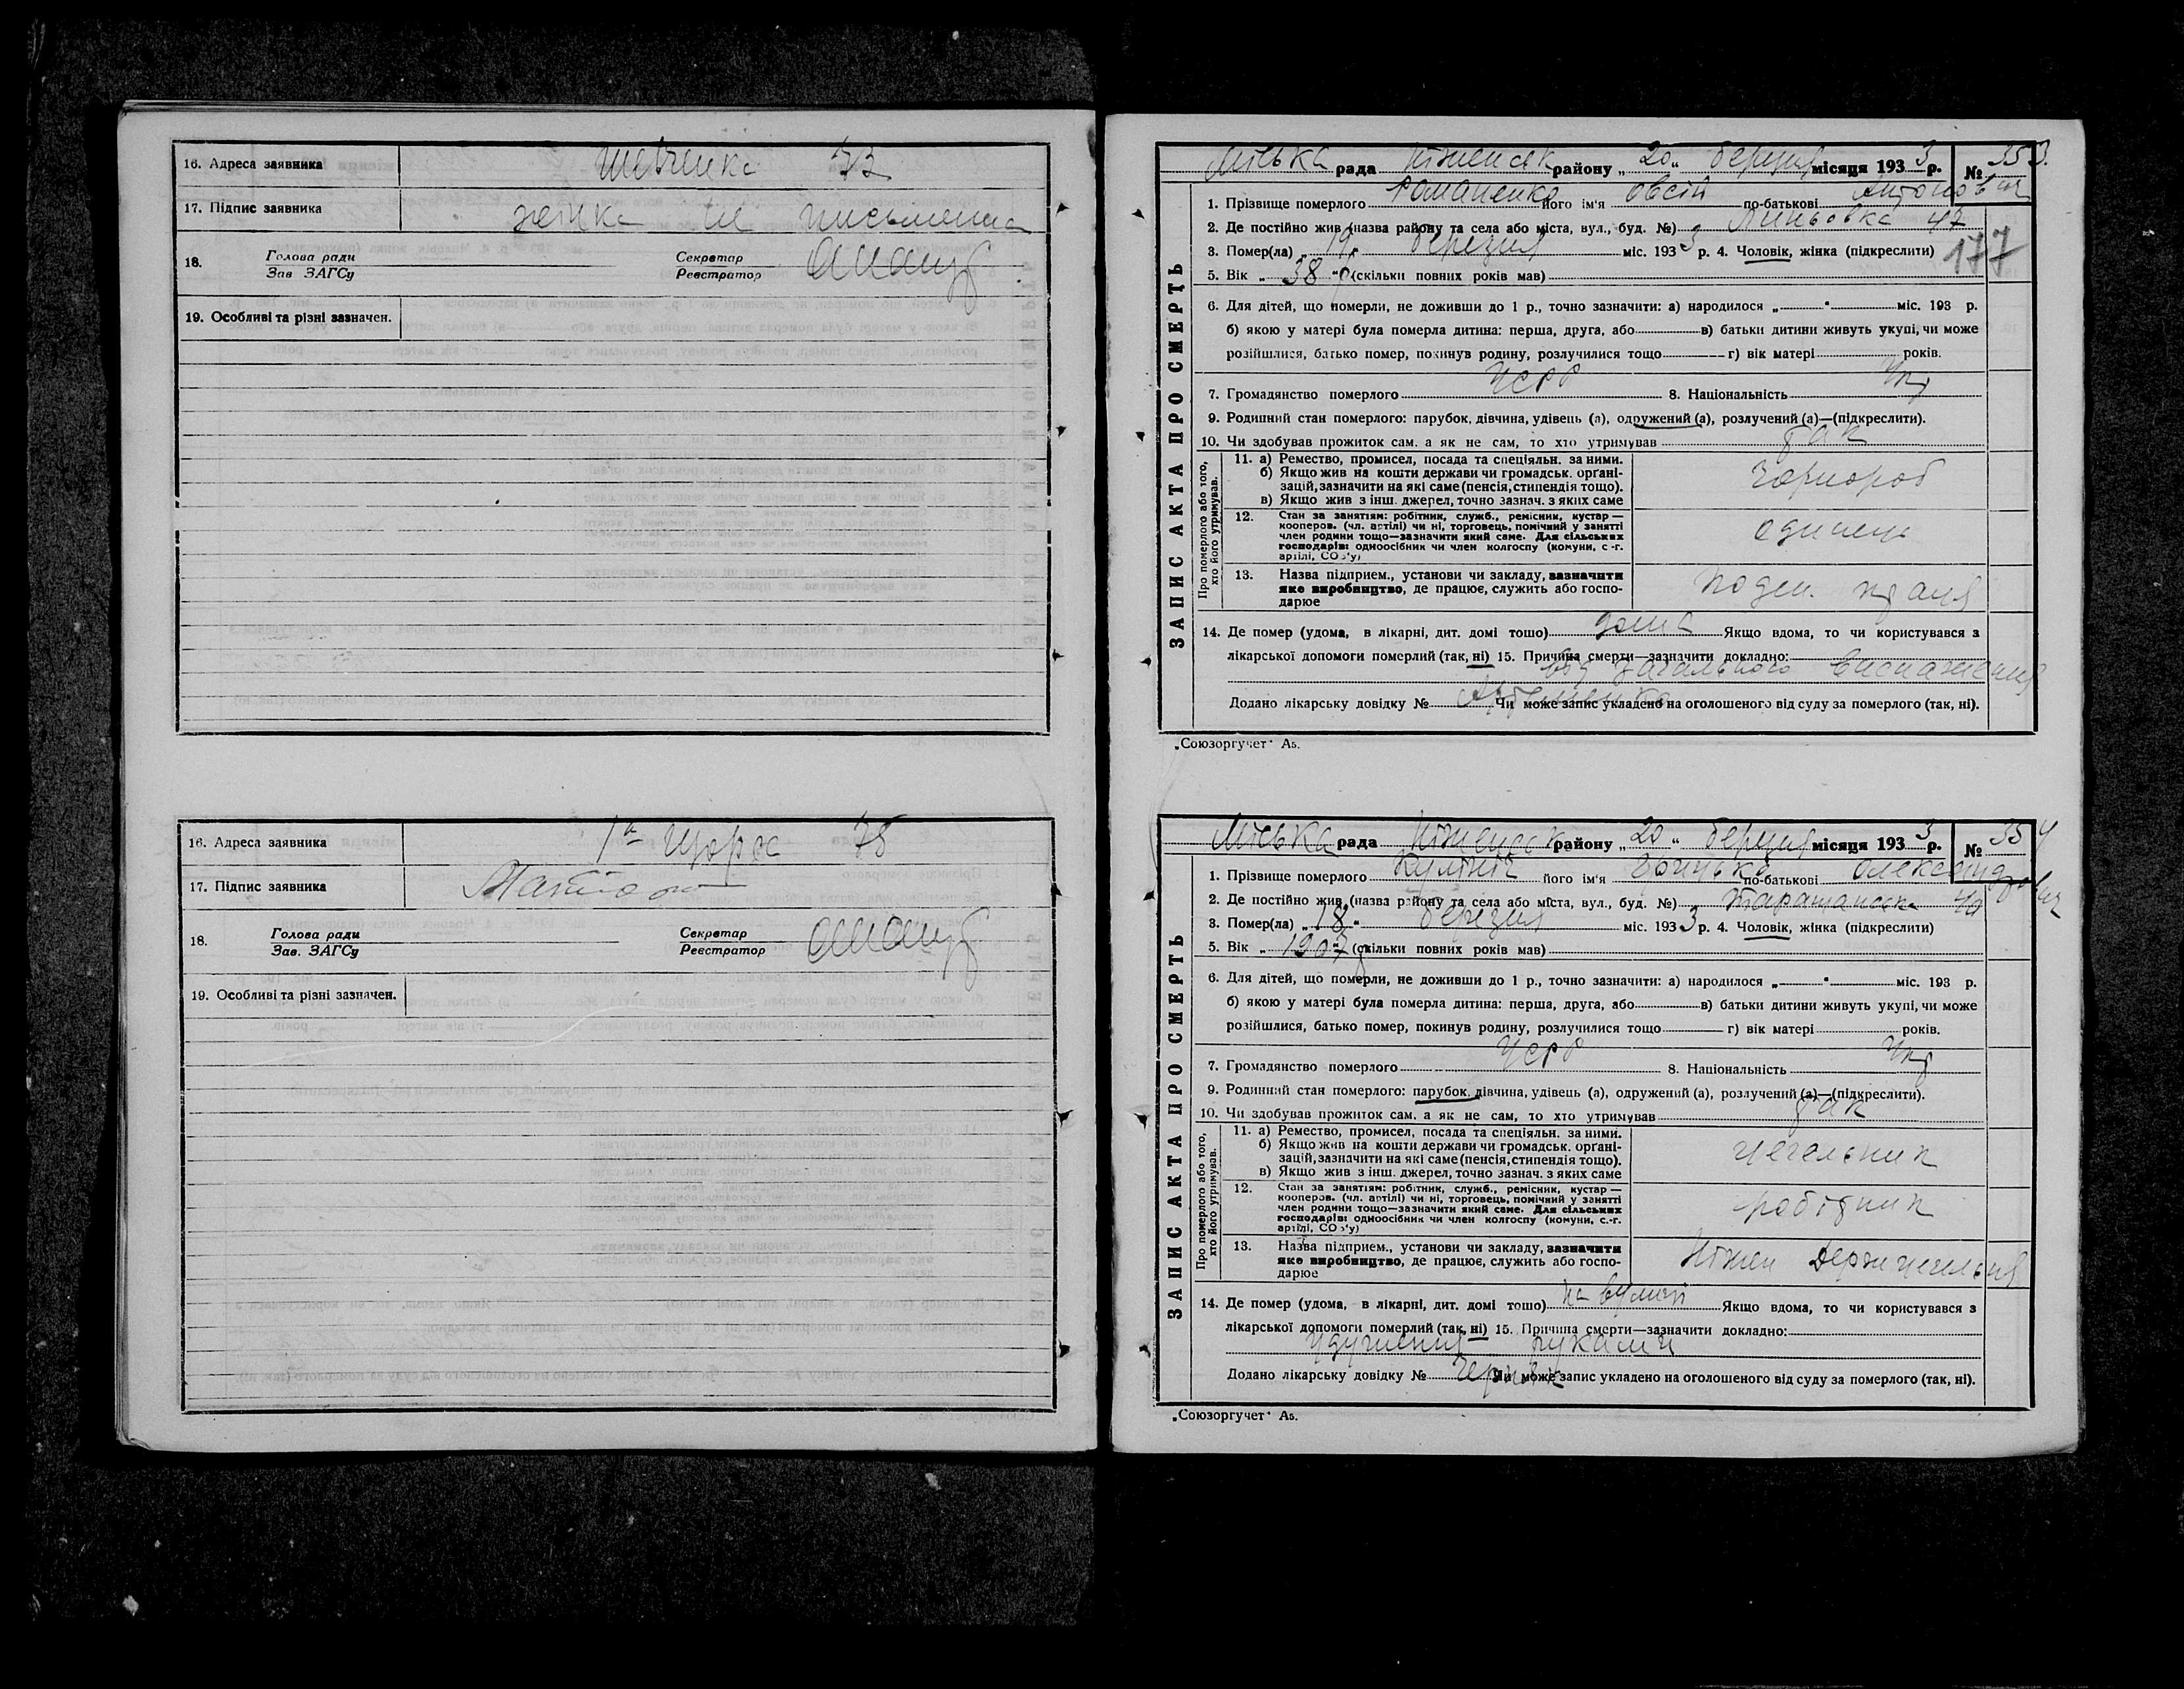 16. Адреса заявника Шевченка 33
17. Підпис заявника жінка не письменна
18. Голова ради Секретар
Зав ЗАГСу Реєстратор
19. Особливі та різні зазначен.
16. Адреса заявника Щорса 78
17. Підпис заявника
18. Голова ради Секретар
Зав. ЗАГСу Реєстратор
19. Особливі та різні зазначен.
ЗАПИС АКТА ПРО СМЕРТЬ
Міська рада Ніженськ району „20" березня місяця 1933 р. № 353
1. Прізвище померлого Романенко його ім'я Овсій по-батькові Антонович
2. Де постійно жив (назва району та села або міста, вул., буд. №) 47
3. Помер(ла) „19" березня міс. 1933 р. 4. Чоловік, жінка (підкреслити) 177
5. Вік „38" р (скільки повних років мав)
6. Для дітей, що померли, не доживши до 1 р., точно зазначити: а) народилося „ " міс. 193 р.
б) якою у матері була померла дитина: перша, друга, або в) батьки дитини живуть укупі, чи може
розійшлися, батько помер, покинув родину, розлучилися тощо г) вік матері років.
7. Громадянство померлого УСРР 8. Національність Укр
9. Родинний стан померлого: парубок, дівчина, удівець (а), одружений (а), розлучений (а)—(підкреслити).
10. Чи здобував прожиток сам, а як не сам, то хто утримував так
Про померлого або того, хто його утримував.
11. а) Ремество, промисел, посада та спеціяльн. за ними.
б) Якщо жив на кошти держави чи громадськ. орґані-
зацій, зазначити на які саме (пенсія, стипендія тощо).
в) Якщо жив з інш. джерел, точно зазнач. з яких саме
Чорнороб
12. Стан за занятіям: робітник, служб., ремісник, кустар—
кооперов. (чл. артілі) чи ні, торговець, помічний у занятті
член родини тощо—зазначити який саме. Для сільських
господарів: одноосібник чи член колгоспу (комуни, с.-г.
артілі, СОЗ'у)
одинець
13. Назва підприєм., установи чи закладу, зазначити
яке виробництво, де працює, служить або госпо-
дарює
поден. праця
14. Де помер (удома, в лікарні, дит. домі тощо) дома Якщо вдома, то чи користувався з
лікарської допомоги померлий (так, ні) 15. Причина смерти—зазначити докладно:
від загального виснаження
Додано лікарську довідку № Чи може запис укладено на оголошеного від суду за померлого (так, ні).
„Союзоргучет" А5.
ЗАПИС АКТА ПРО СМЕРТЬ
Міська рада Ніженськ району „20" березня місяця 1933 р. № 354
1. Прізвище померлого Кулініч його ім'я Гринько по-батькові Олександрович
2. Де постійно жив (назва району та села або міста, вул., буд. №) Таращанськ 40
3. Помер(ла) „18" березня міс. 1933 р. 4. Чоловік, жінка (підкреслити)
5. Вік „1907 р (скільки повних років мав)
6. Для дітей, що померли, не доживши до 1 р., точно зазначити: а) народилося „ " міс. 193 р.
б) якою у матері була померла дитина: перша, друга, або в) батьки дитини живуть укупі, чи може
розійшлися, батько помер, покинув родину, розлучилися тощо г) вік матері років.
7. Громадянство померлого УСРР 8. Національність Укр
9. Родинний стан померлого: парубок, дівчина, удівець (а), одружений (а), розлучений (а)—(підкреслити).
10. Чи здобував прожиток сам, а як не сам, то хто утримував так
Про померлого або того, хто його утримував.
11. а) Ремество, промисел, посада та спеціяльн. за ними.
б) Якщо жив на кошти держави чи громадськ. орґані-
зацій, зазначити на які саме (пенсія, стипендія тощо).
в) Якщо жив з інш. джерел, точно зазнач. з яких саме
цегельник
12. Стан за занятіям: робітник, служб., ремісник, кустар—
кооперов. (чл. артілі) чи ні, торговець, помічний у занятті
член родини тощо—зазначити який саме. Для сільських
господарів: одноосібник чи член колгоспу (комуни, с.-г.
артілі, СОЗ'у)
робітник
13. Назва підприєм., установи чи закладу, зазначити
яке виробництво, де працює, служить або госпо-
дарює
Ніжен Держцегельня
14. Де помер (удома, в лікарні, дит. домі тощо) на вулиці Якщо вдома, то чи користувався з
лікарської допомоги померлий (так, ні) 15. Причина смерти—зазначити докладно:
удушення руками
Додано лікарську довідку № Чи може запис укладено на оголошеного від суду за померлого (так, ні).
„Союзоргучет" А5.